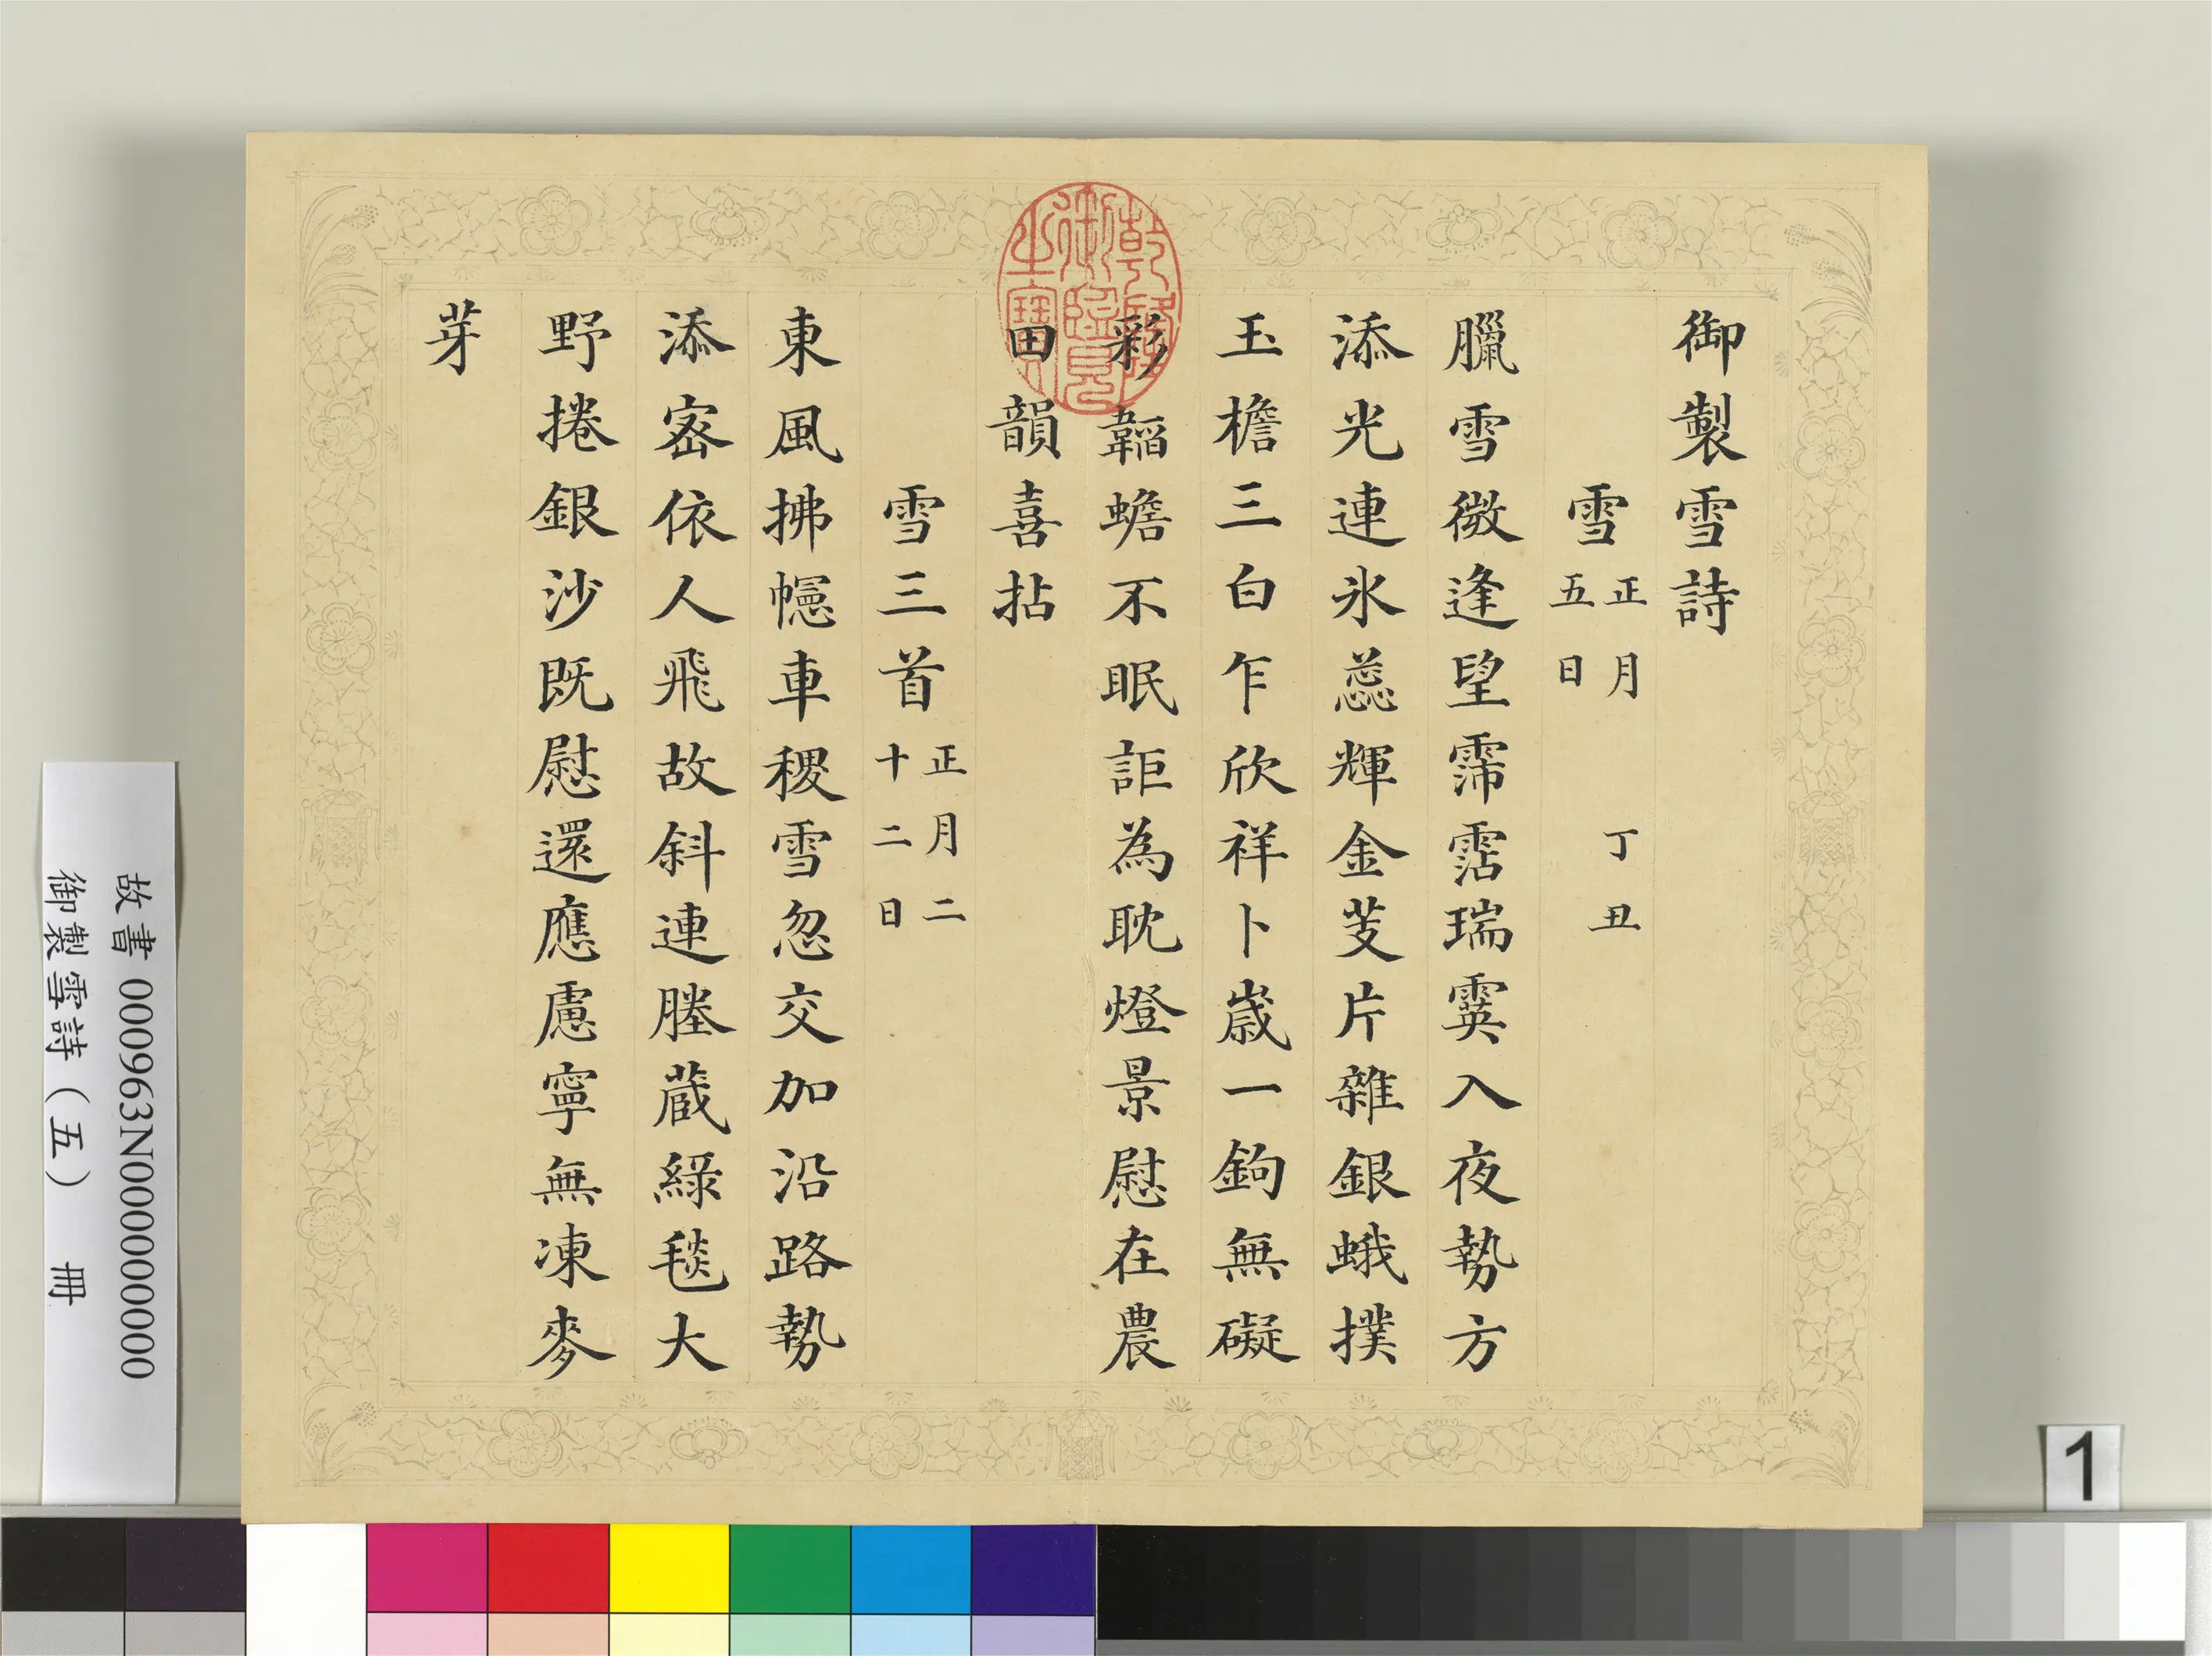 御製雪詩
雪 正月五日 丁丑
臘雪微逢望霈霑瑞霙入夜勢方
添光連氷蕊輝金芰片雜銀蛾撲
玉檐三白乍欣祥卜歲一鉤無礙
彩韜蟾不眠詎為耽燈景慰在農
田韻喜拈
雪三首 正月二十二日
東風拂幰車稷雪忽交加沿路勢
添密依人飛故斜連塍藏綠毯大
野捲銀沙既慰還應慮寧無凍麥
芽
乾隆御覽之寶
故書 000963N000000000
御製雪詩(五) 冊
1